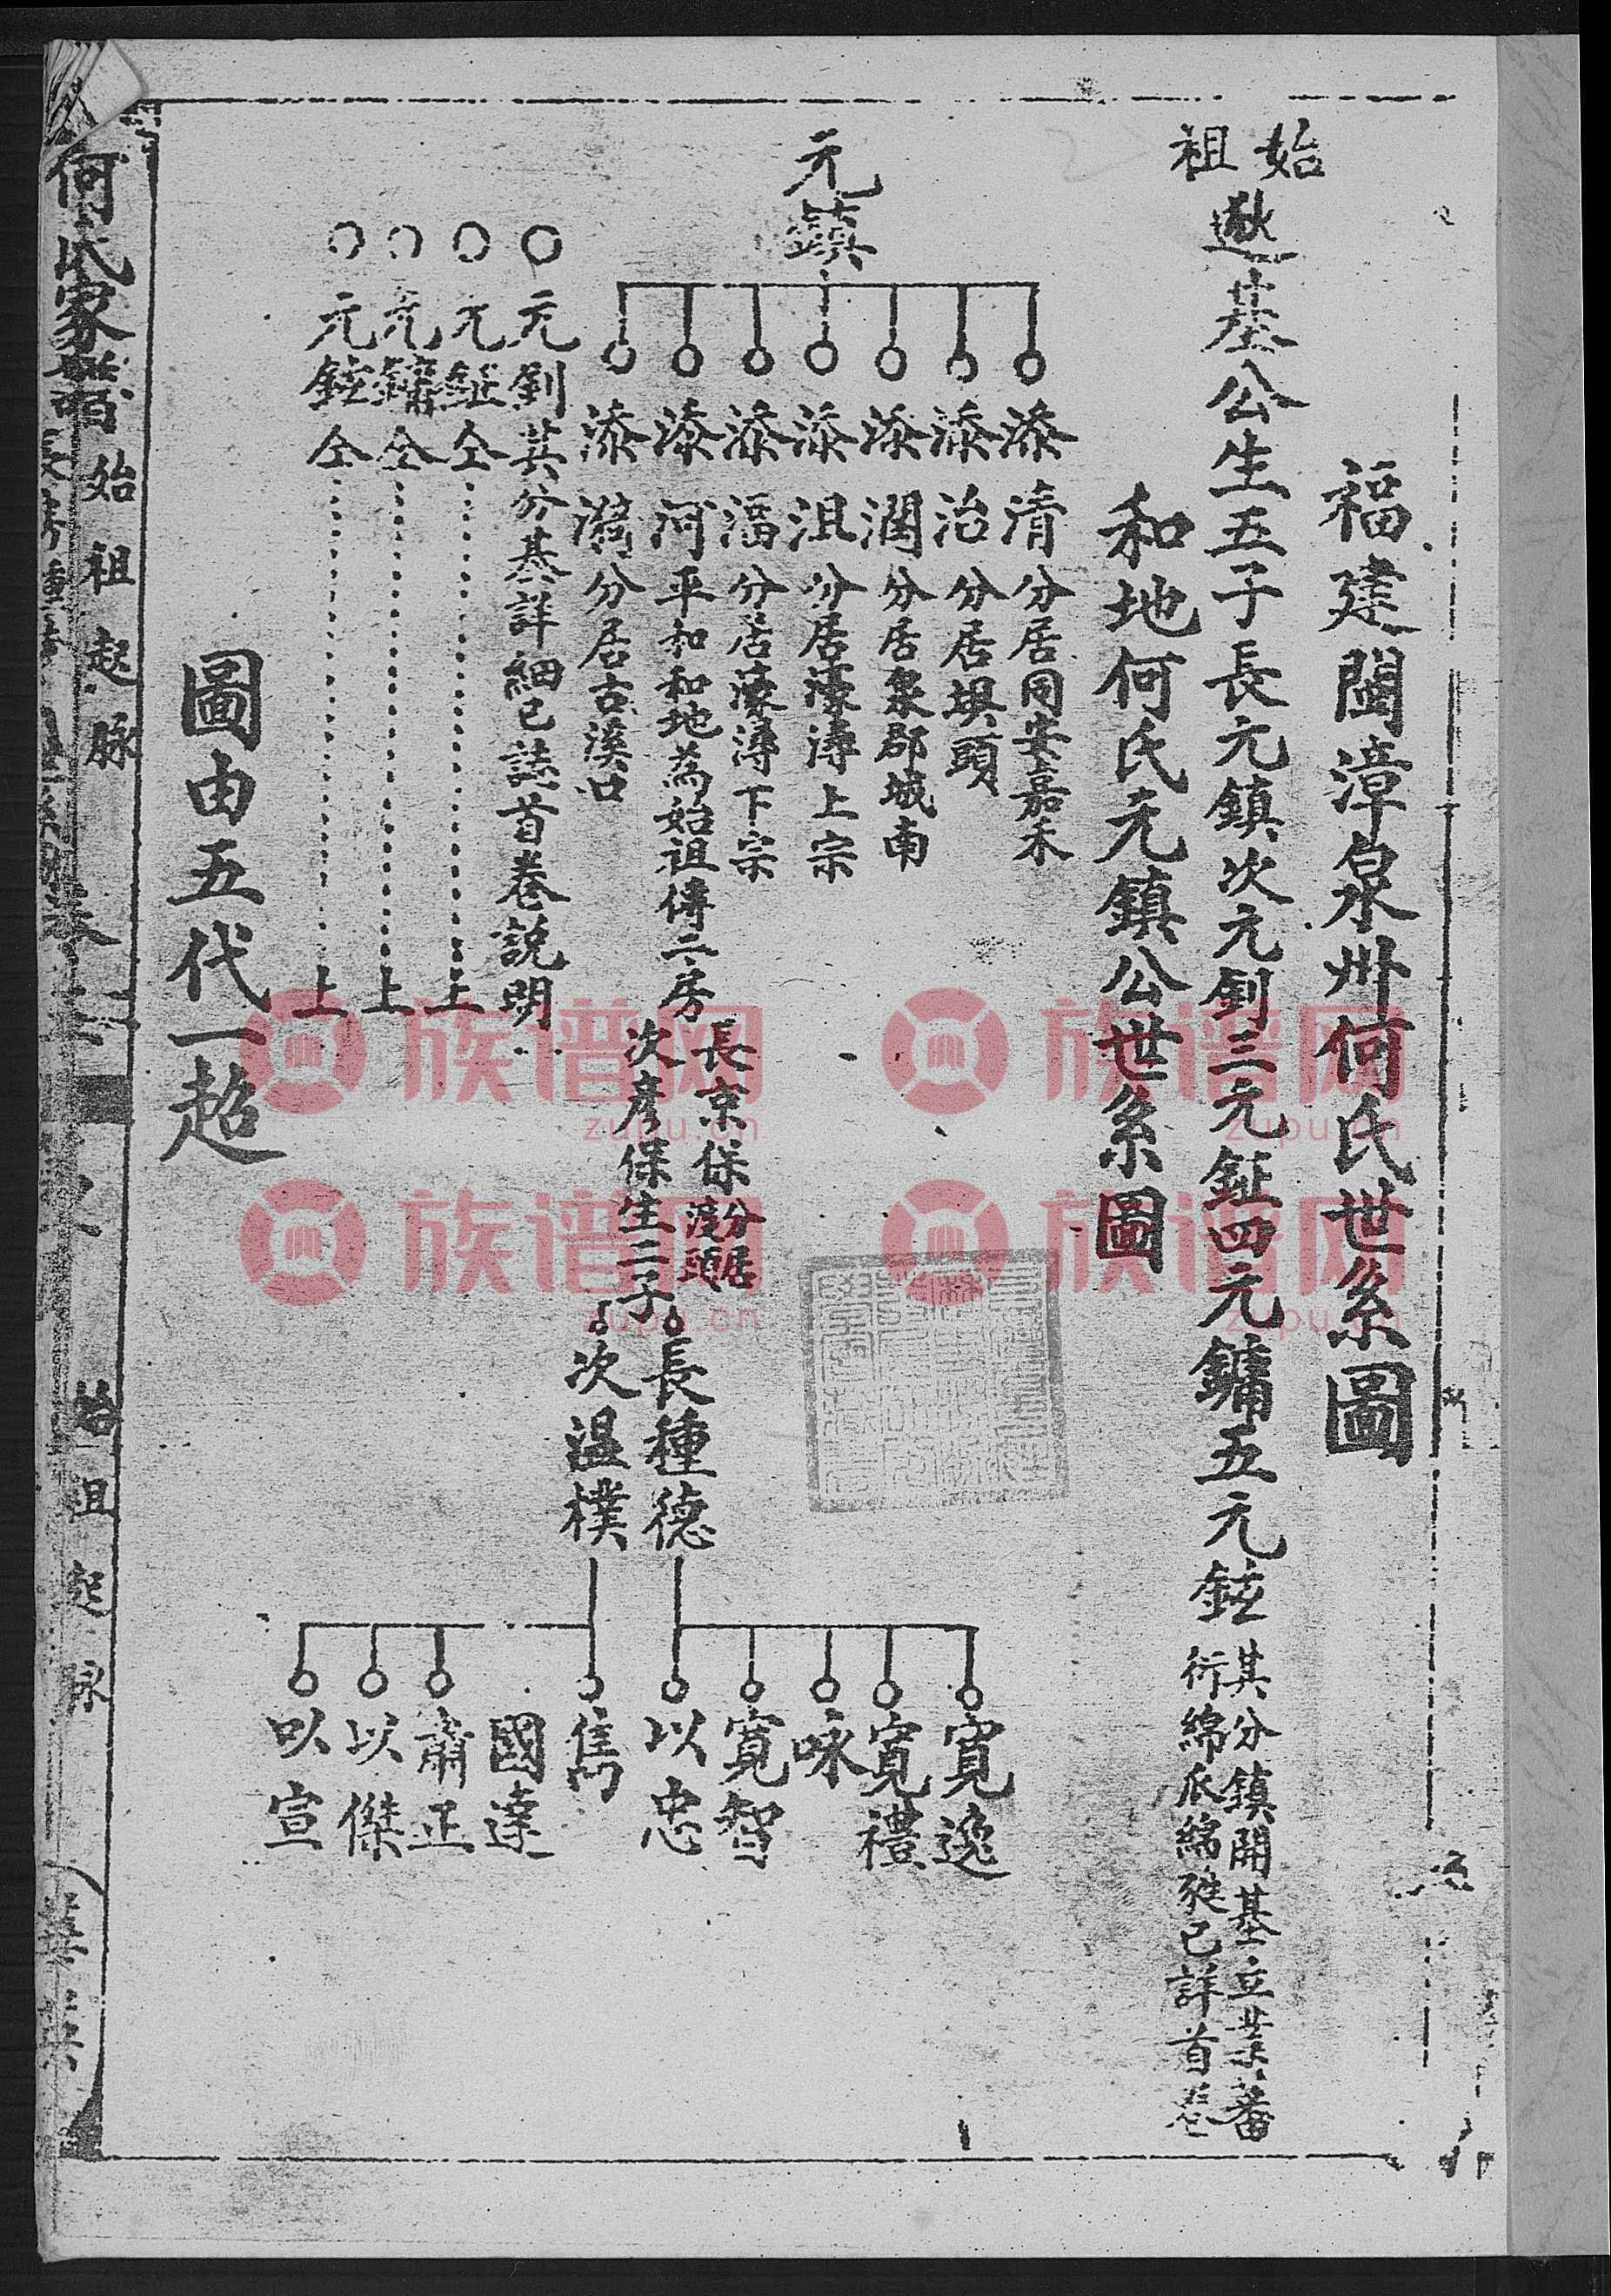 福建閩漳泉州何氏世系圖
始祖
邀基公生五子長元鎮次元釗三元鉦四元鏞五元鉉
其分鎮開基立業蕃
衍綿瓜綿瓞已詳首卷
和地何氏元鎮公世系圖
元鎮
添清分居同安嘉禾
添治分居埧頭
添潤分居泉郡城南
添沮分居藻溥上宗
添湢分居藻溥下宗
添河平和和地為始祖傳二房
長京保分居渡頭
次彥保生二子
長種德
次溫樸
添漪分居古溪口
寬逸
寬禮
咏
寬智
以忠
雋
國達
肅正
以傑
以宣
元釗其分基詳細已誌首卷說明
元鉦仝上
元鏞仝上
元鉉仝上
圖由五代一起
何氏家譜
始祖起脉
始祖起脉
族谱网
zupu.cn
族谱网
zupu.cn
族谱网
zupu.cn
族谱网
zupu.cn